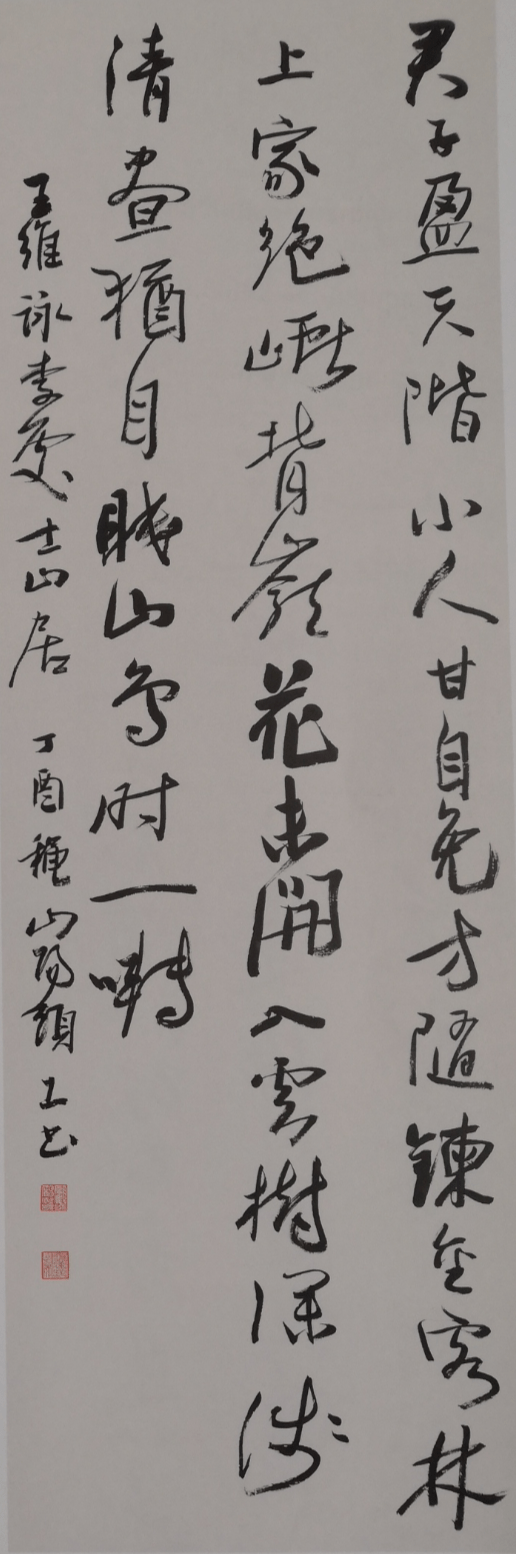 君子盈天階小人甘自免方隨鍊金客林
上家絕巘背嶺花未開入雲樹深淺
清晝猶自眠山鳥时一囀
王維詠李處士山居丁酉穐山陽頭上书